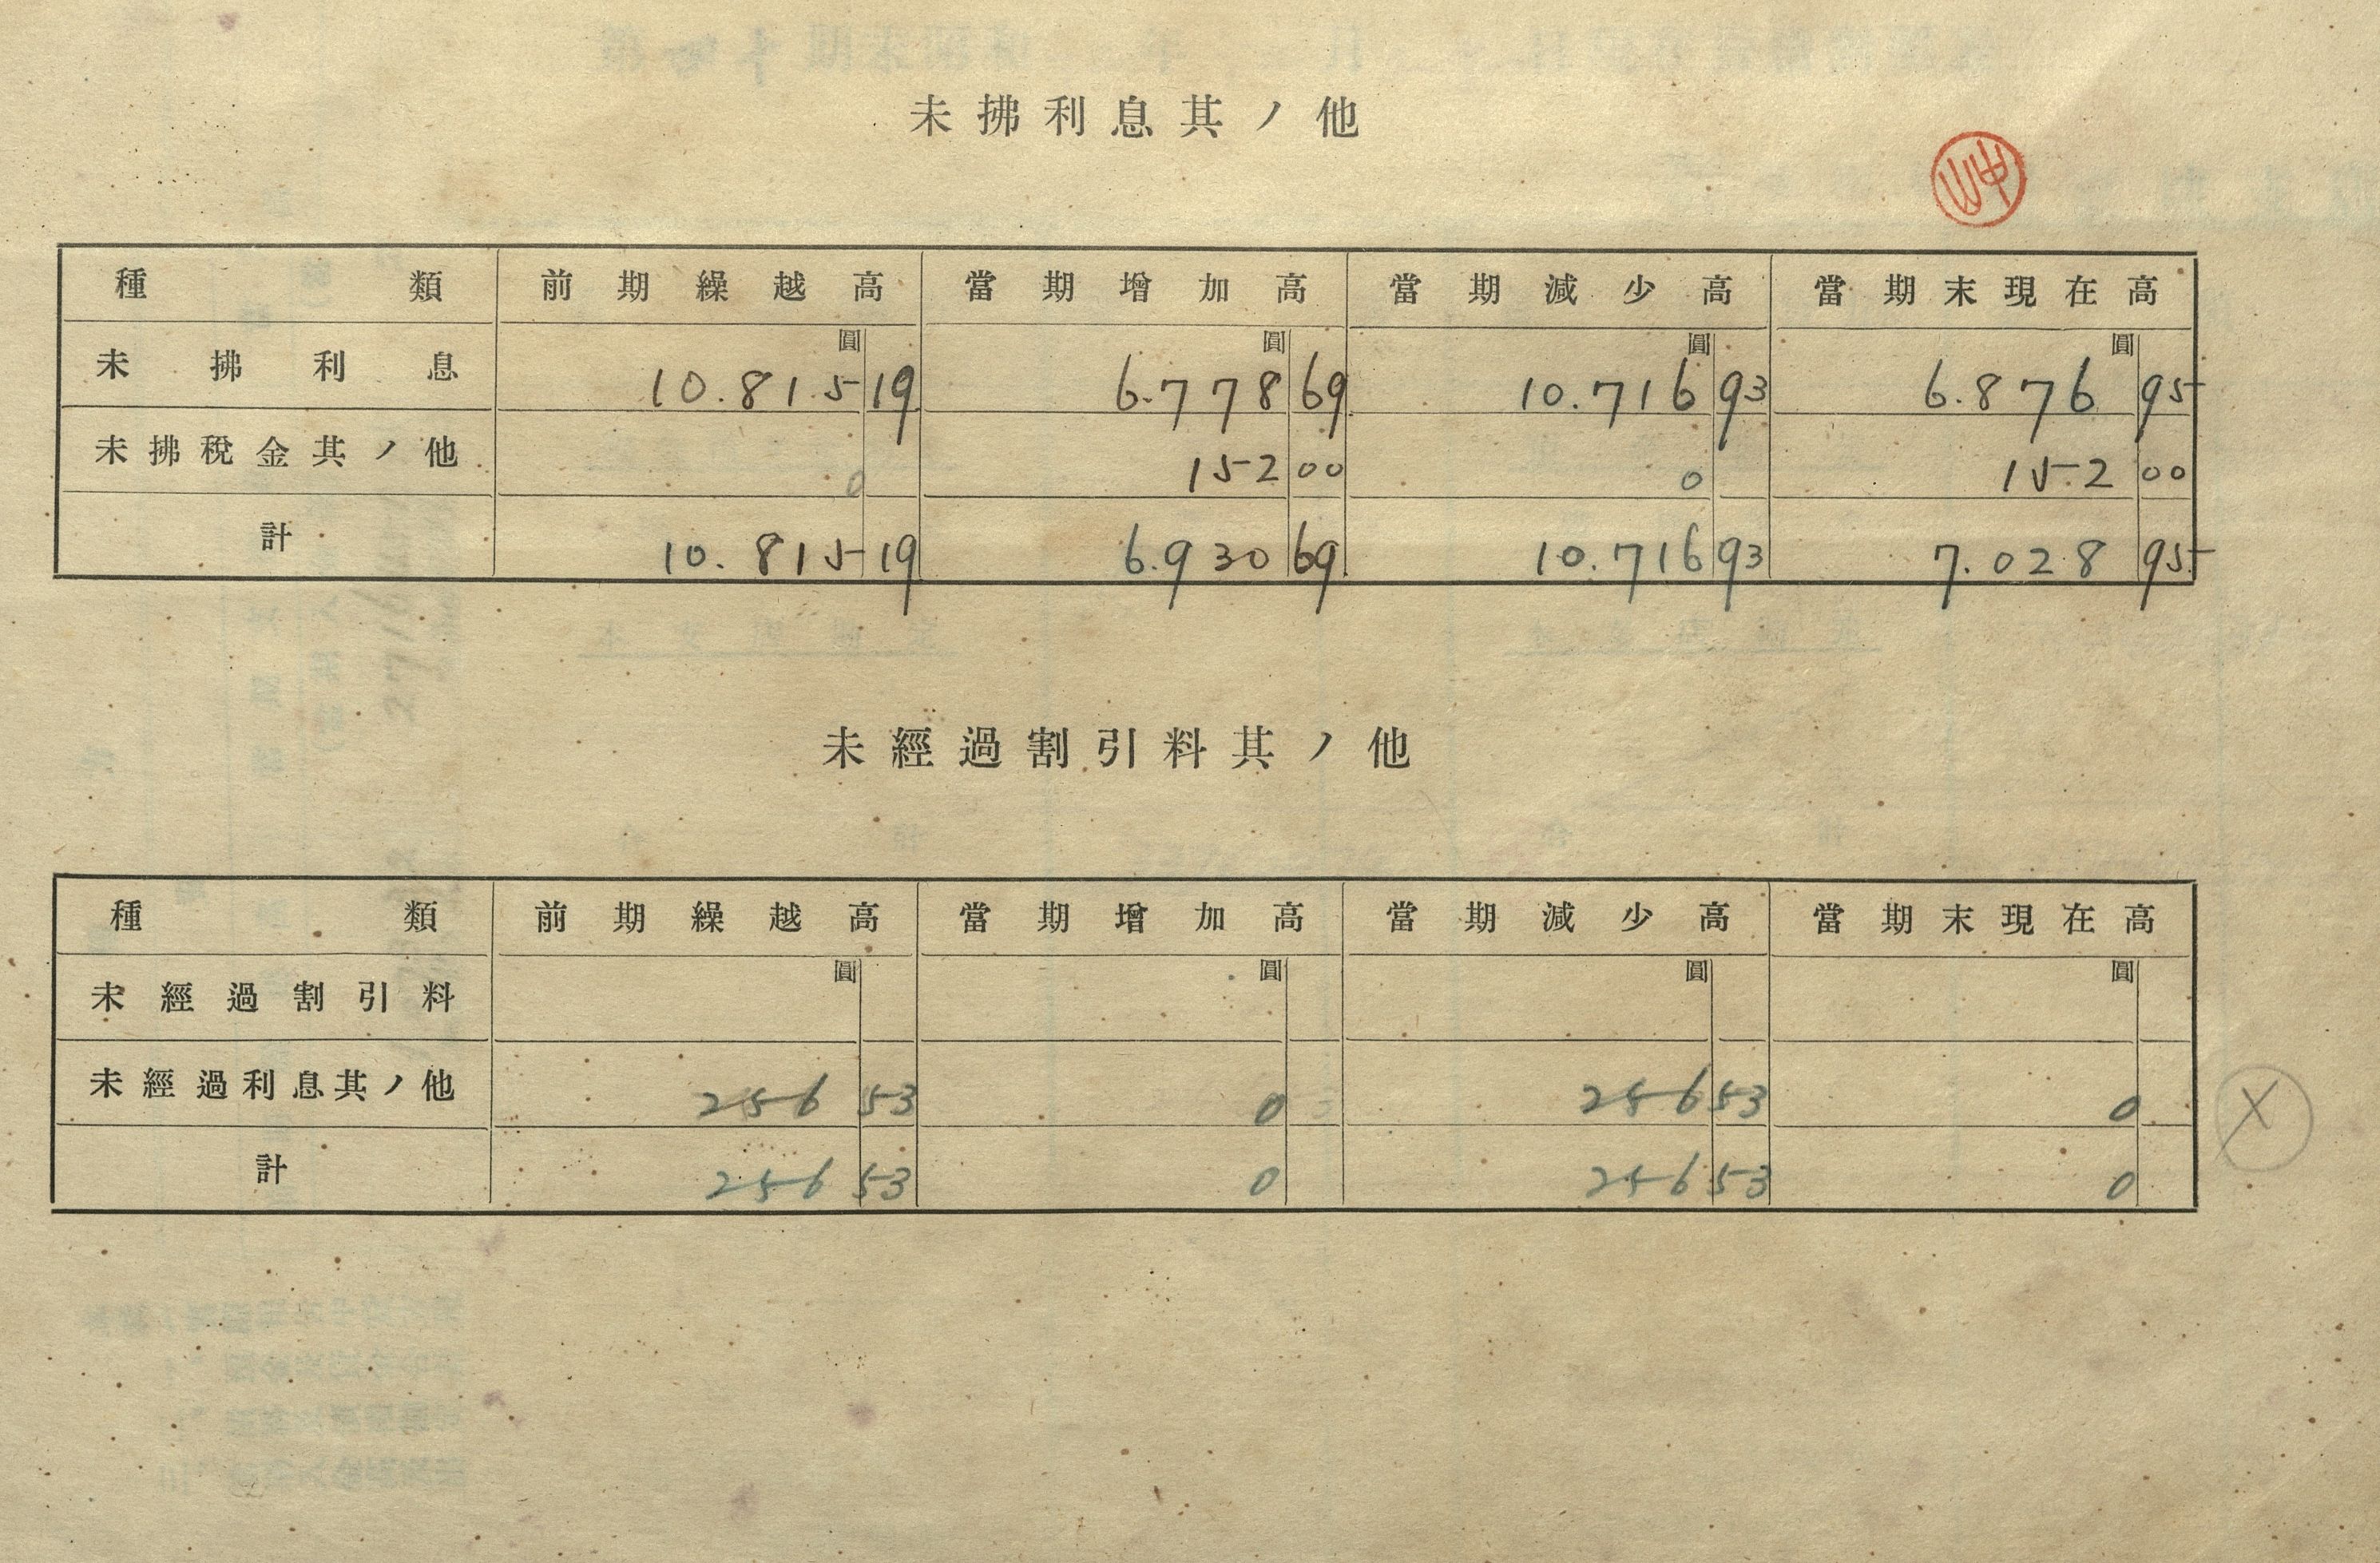 未拂利息其ノ他
種類 前期繰越高 當期增加高 當期減少高 當期末現在高
圓 圓 圓 圓
未拂利息 10.815 19 6.778 69 10.716 93 6.876 95
未拂稅金其ノ他 0 152 00 0 152 00
計 10.815 19 6.930 69 10.716 93 7.028 95
未經過割引料其ノ他
種類 前期繰越高 當期增加高 當期減少高 當期末現在高
圓 圓 圓 圓
未經過割引料
未經過利息其ノ他 256 53 0 256 53 0
計 256 53 0 256 53 0